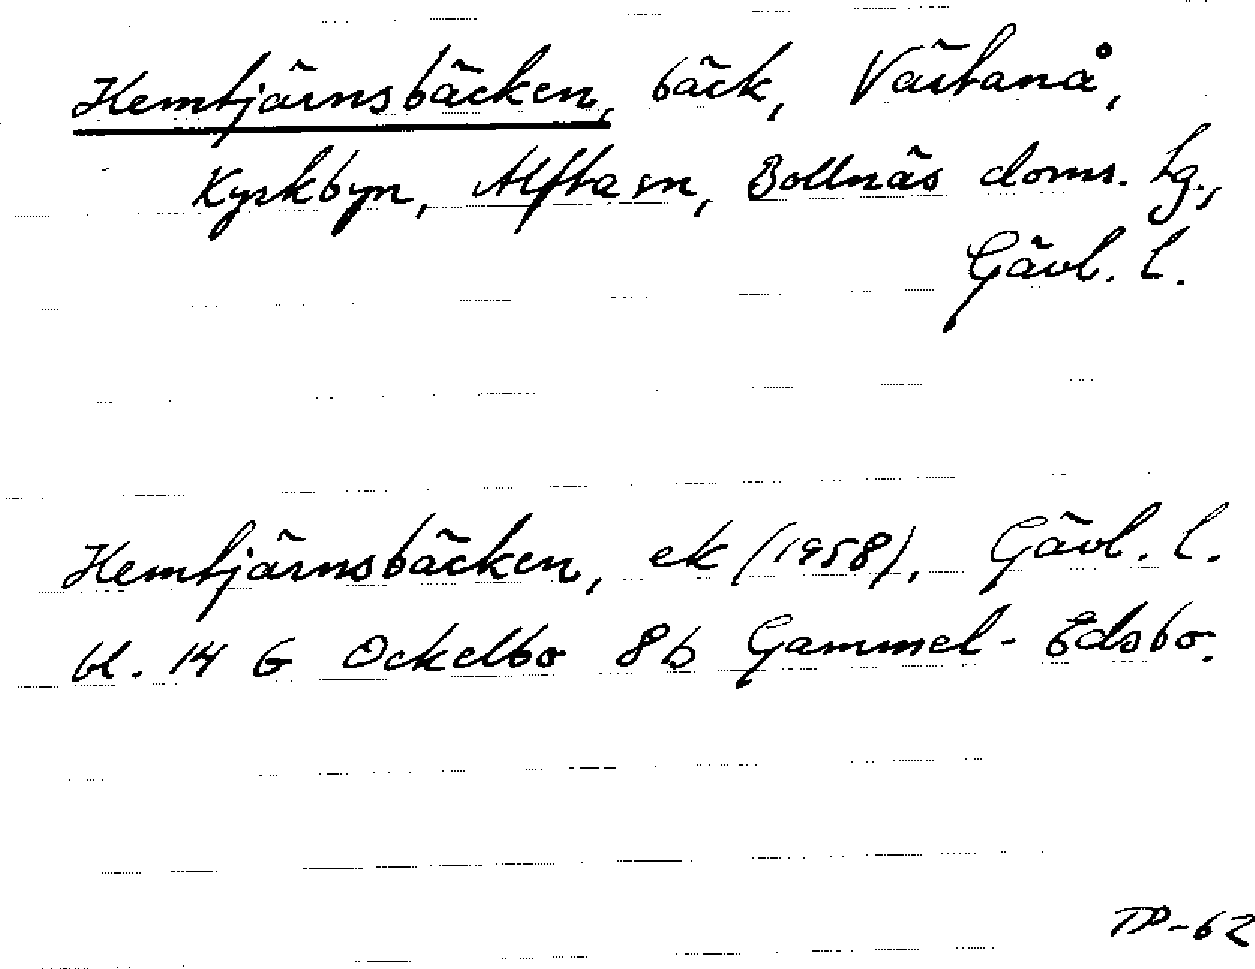 Hemtjärnsbäcken, bäck, Västanå,
Kyrkbyn, Alfta sn, Bollnäs doms. tg.,
Gävl. l.
Hemtjärnsbäcken, ek (1958), Gävl. l.
bl. 14 G Ockelbo 8b Gammel-Edsbo.
TP-62